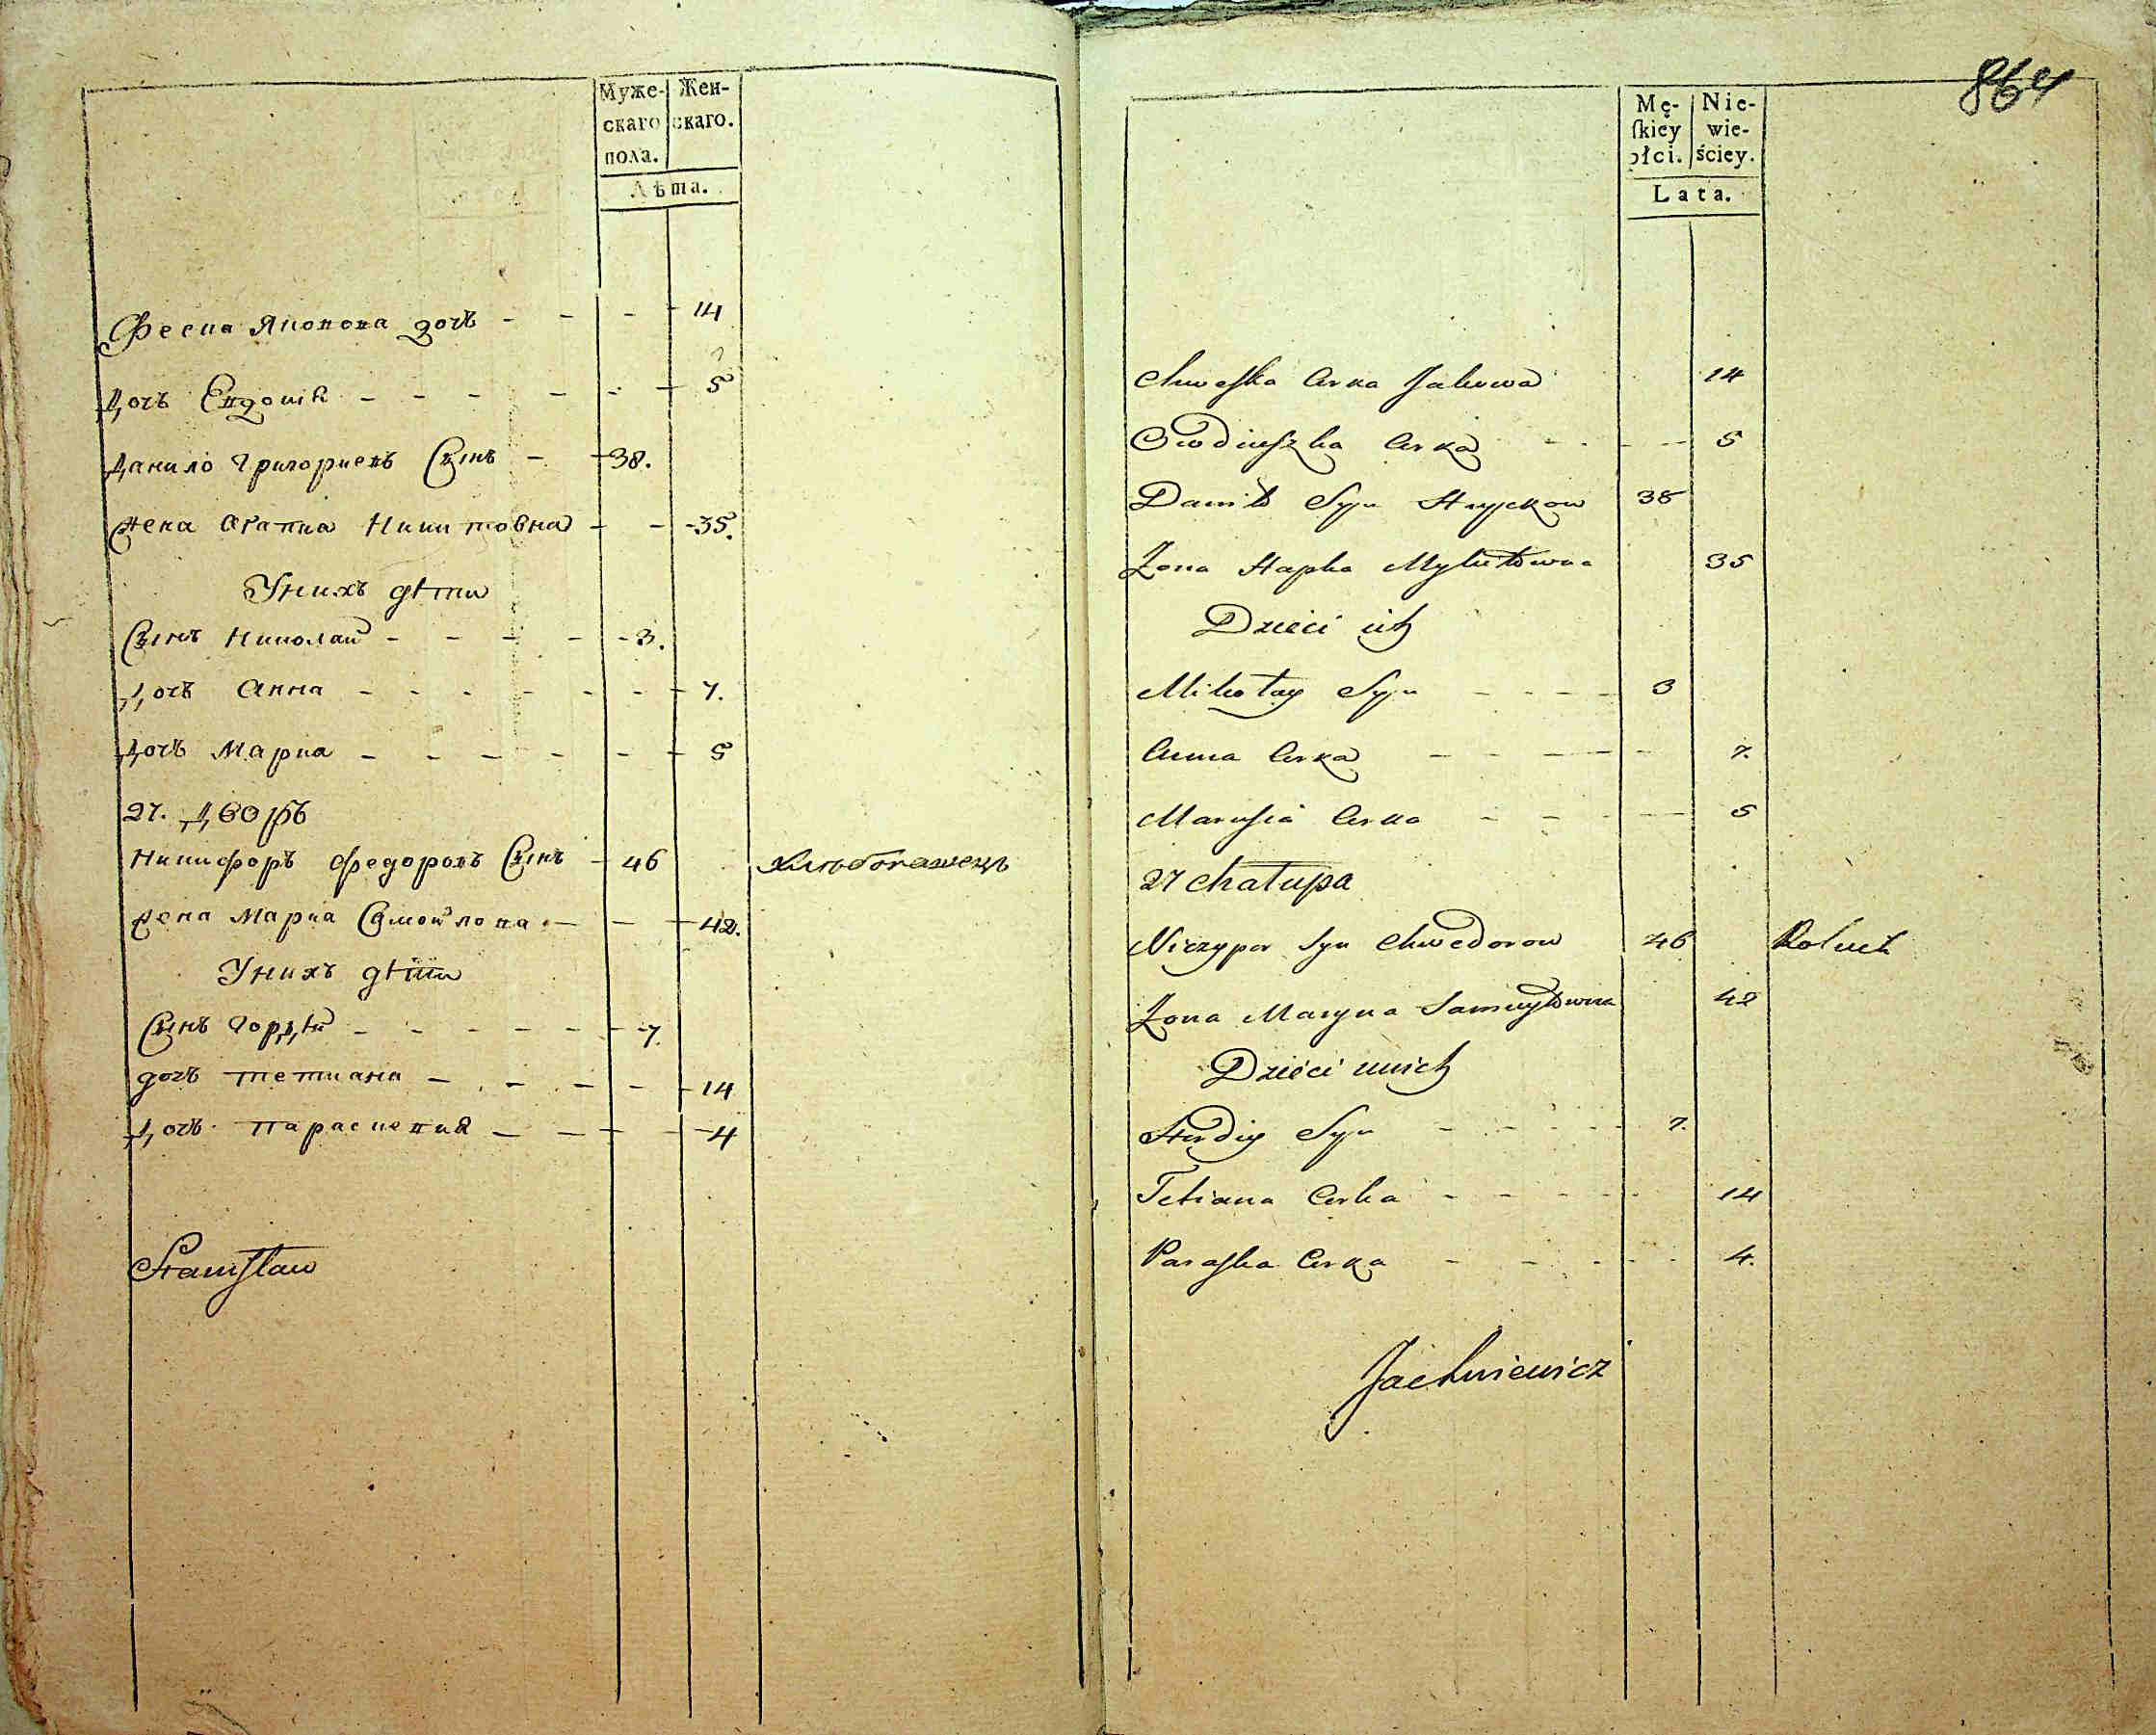 Муже- Жен-
скаго скаго.
пола.
Лѣта.
Фесна Яковова дочь - - - 14
Дочь Евдокiѣ - - - - - 5
Данило Григориевъ Сынъ - 38.
Жена Агапиа Никитовна - - 35.
У нихъ дѣти
Сынъ Николай - - - - 3.
Дочь Анна - - - - - 7.
Дочь Мариа - - - - - 5
27. Дворъ
Никифоръ Федоровъ Сынъ - 46 Хлѣбопашецъ
Жена Мариа Самойлова - - 42.
У нихъ дѣти
Сынъ Гордѣй - - - - - 7.
дочь Тетиана - - - - 14
Дочь Параскевия - - - - 4
Stanisław
864
Mę- Nie-
skiey wie-
płci. ściey.
Lata.
Chweśka Corka Jakowa 14
Owdiuszka Corka - - - - 5
Daniło Syn Hryckow 38
Zona Hapka Mykitowna 35
Dzieci ich
Mikołay Syn - - - - 3
Anna Corka - - - - - 7.
Marusia Corka - - - - 5
27 Chałupa
Niczypor Syn Chwedorow 46 Rolnik
Zona Maryna Samuyłowna 42
Dzieci unich
Hordiy Syn - - - - - 7.
Tetiana Corka - - - - - 14
Paraska Corka - - - - - 4.
Jachniewicz